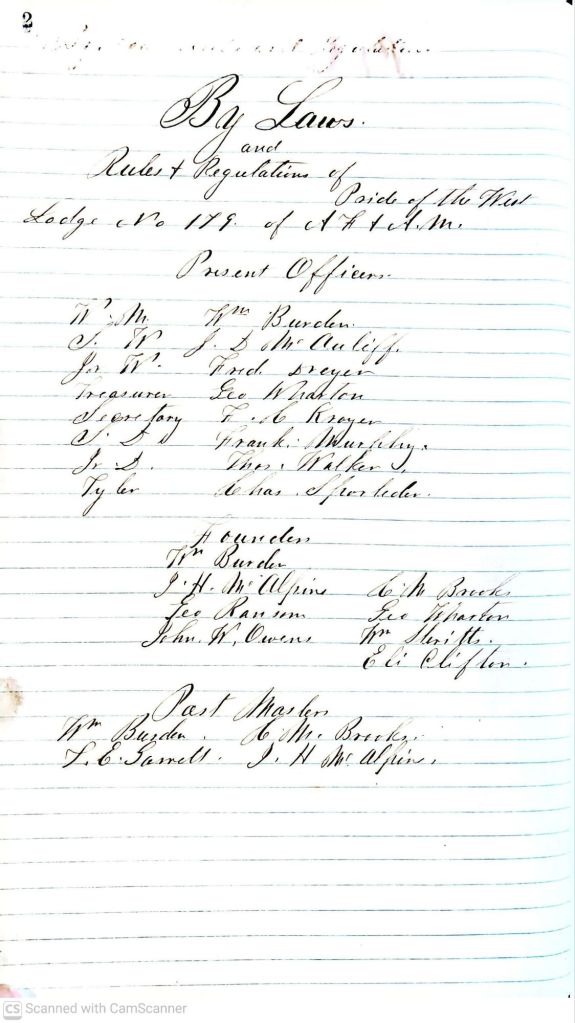 2
and Regulations
By Laws.
and
Rules & Regulations of
Pride of the West
Lodge No 179. of A F & A. M.
Present Officers
W. M. Wm Burden
S. W J. D McAuliff.
Jr W. Fred Dreyer
Treasurer Geo Wharton
Secretary F. C Kroyer
S. D Frank Murphy.
Jr. D. Thos. Walker,
Tyler Chas. Sporleder.
Founders
Wm Burden
J. H. McAlpine C M Brooks
Geo Ransom Geo Wharton
John. W. Owens Wm
Eli Clifton.
Past Masters
Wm Burden. C M. Brooks.
T. E. Garrett. J. H McAlpine.
CS Scanned with CamScanner